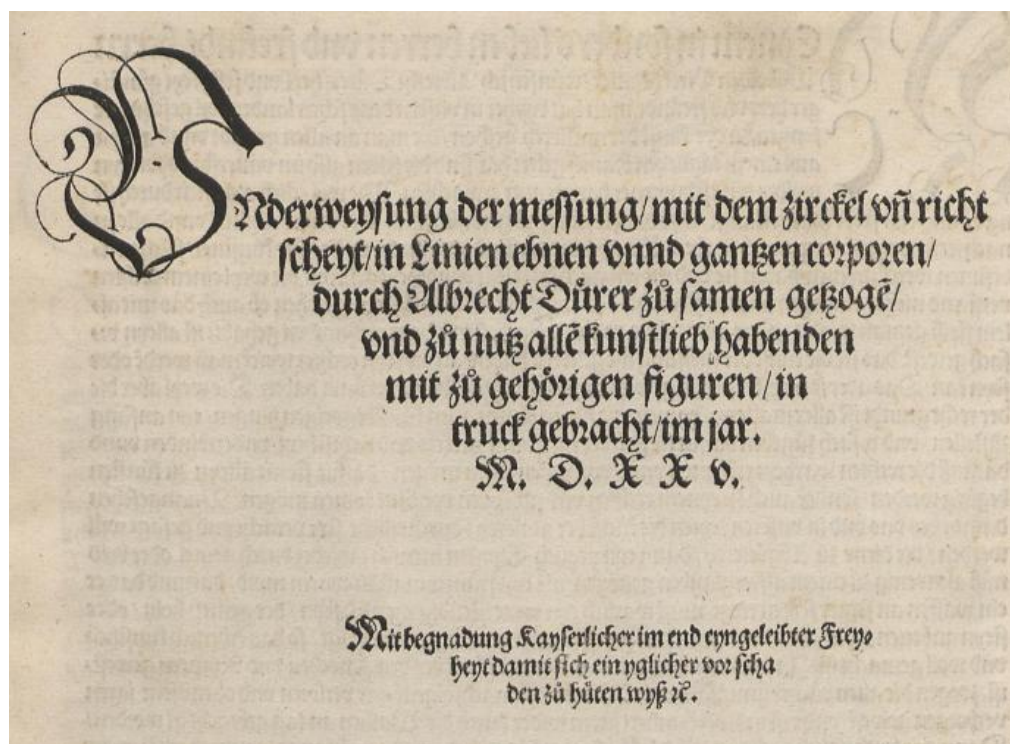 VNderweysung der messung/ mit dem zirckel vñ richt
scheyt/ in Linien ebnen vnnd gantzen corporen/
durch Albrecht Dürer zů samen getzogẽ/
vnd zů nutz allẽ kunstlieb habenden
mit zů gehörigen figuren/ in
truck gebracht/ im jar.
M. D. X X v.
Mit begnadung Kayserlicher im end eyngeleibter Frey⸗
heyt damit sich ein yglicher vor scha
den zů hüten wyß ꝛc̃.